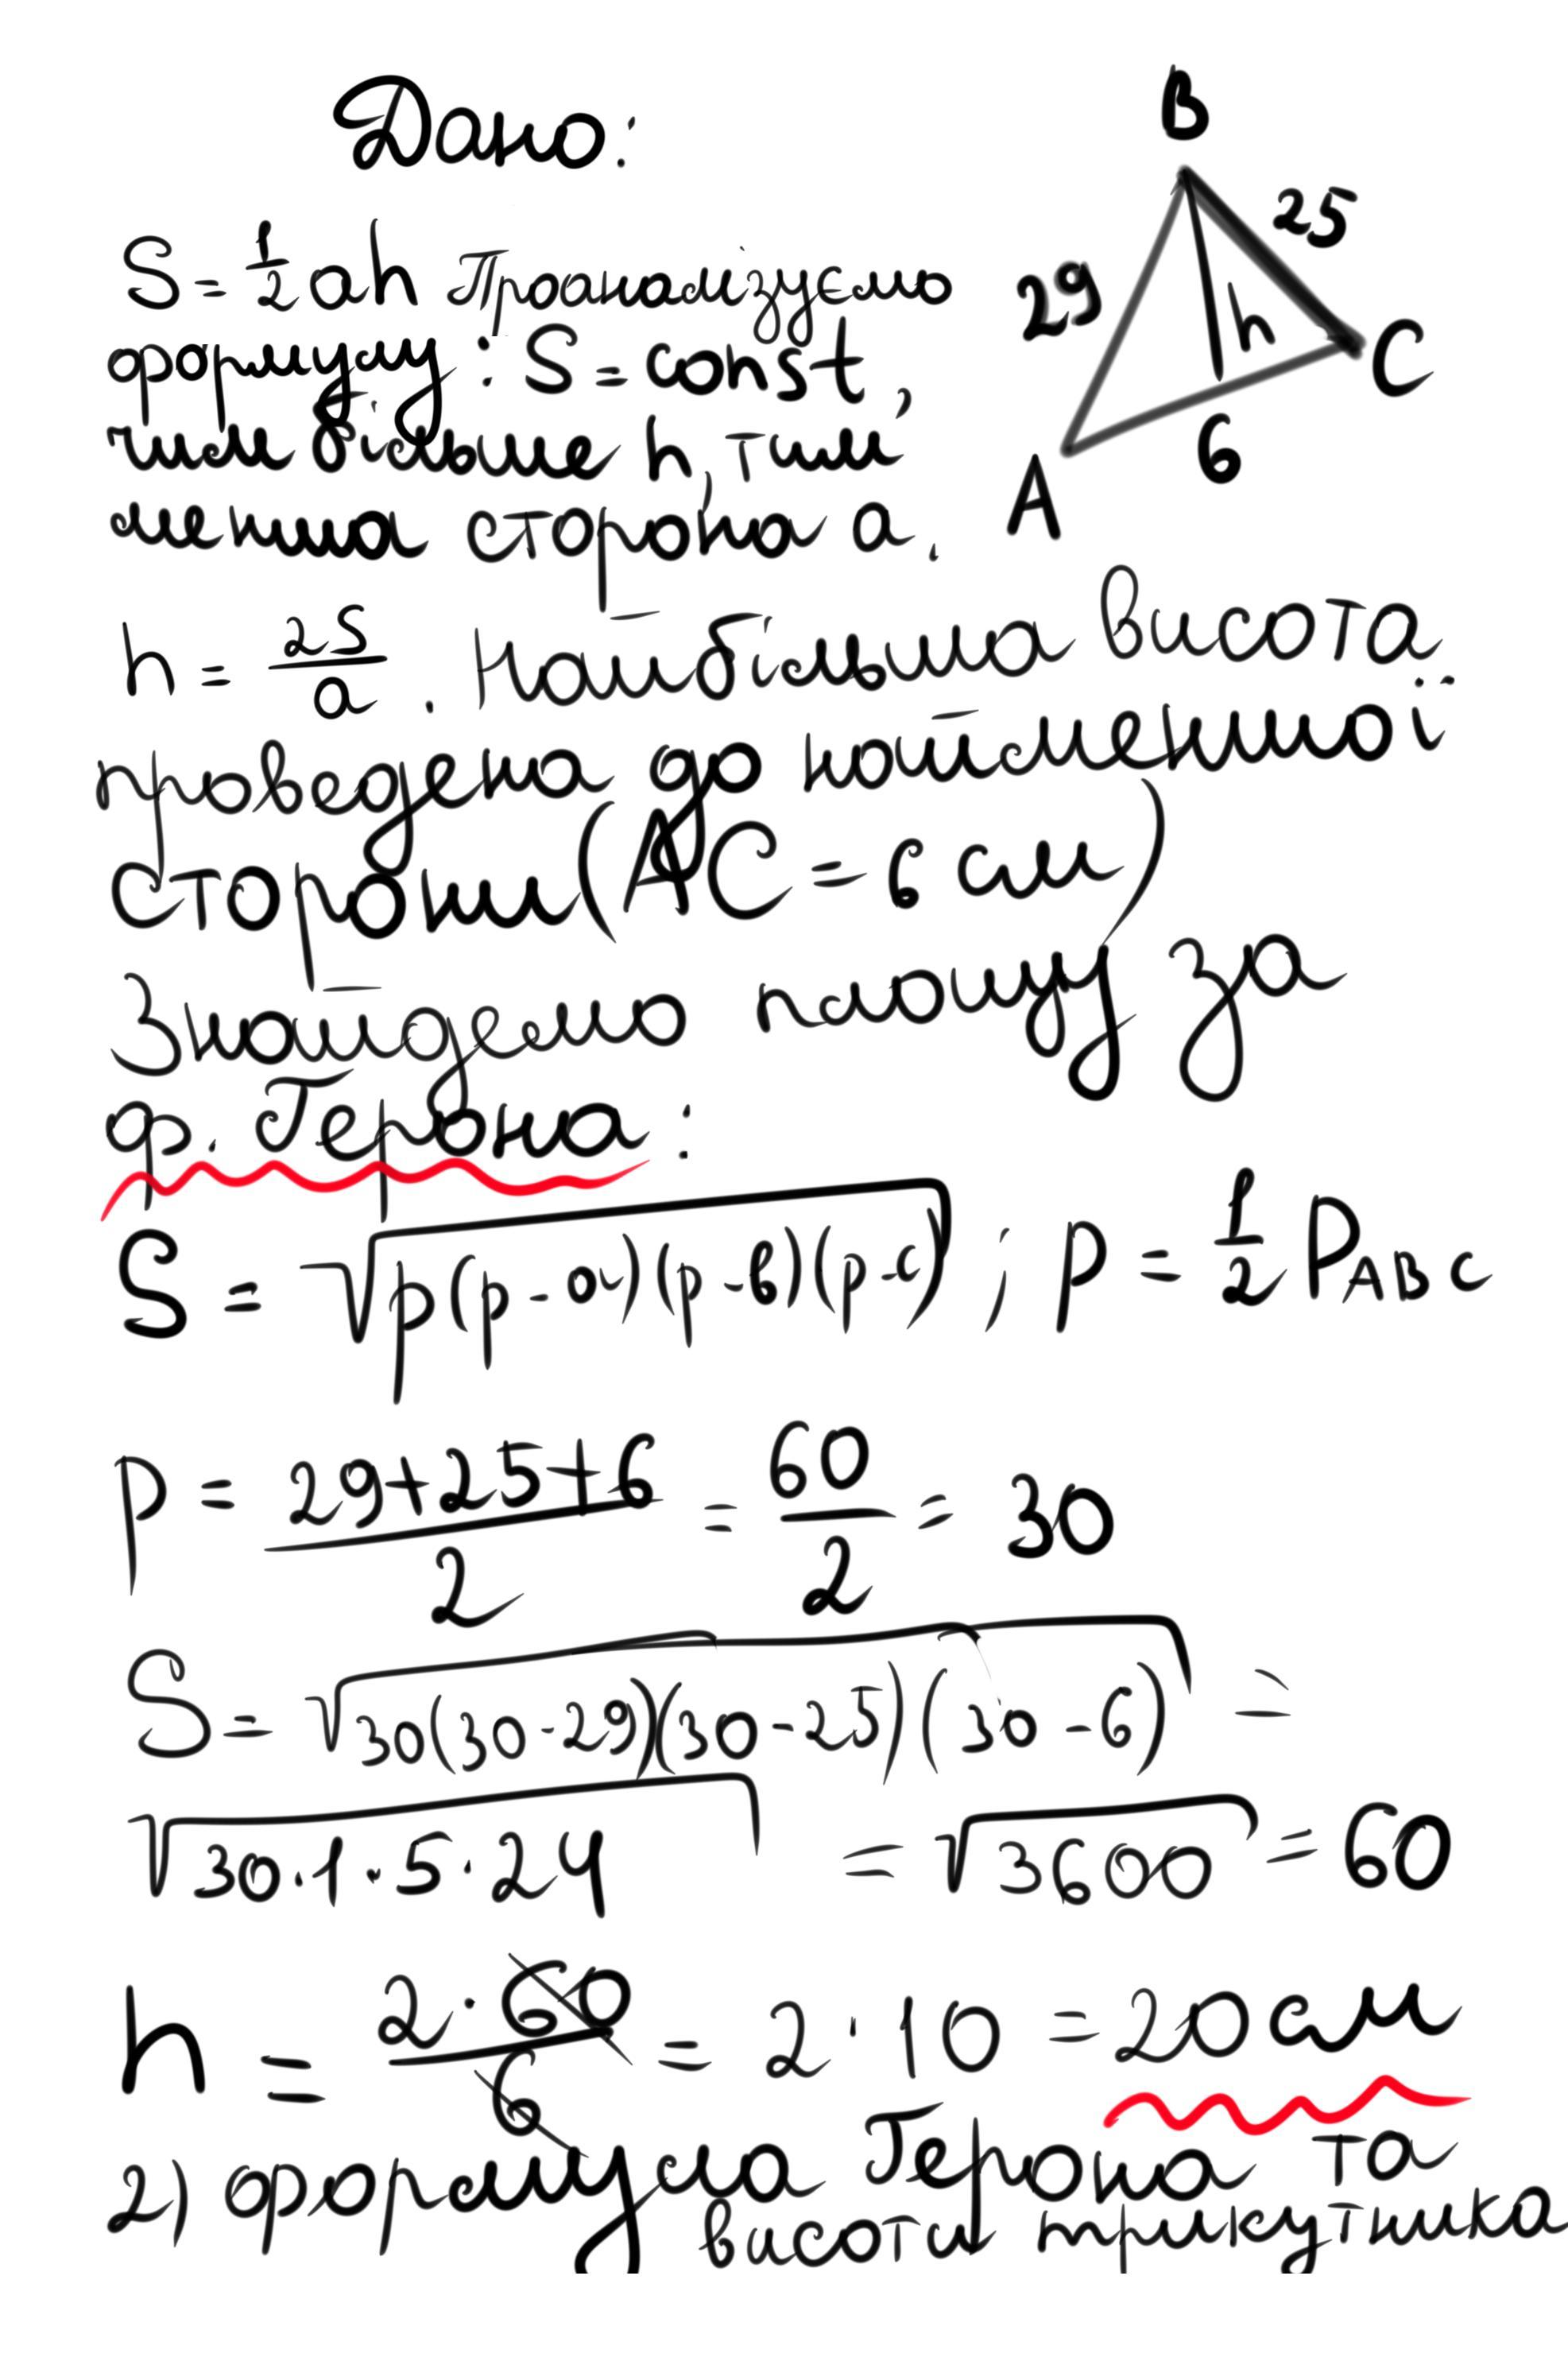 Дано:
B
25
29
h
C
6
A
S = 1/2 ah Проаналізуємо
формулу : S = const,
чим більше h, тим
менша сторона a.
h = 2S/a . Найбільша висота
проведена до найменшої
сторони (AC = 6 см)
Знайдемо площу за
ф. Герона :
S = √p(p - a)(p - b)(p - c) ; p = 1/2 PABC
p = 29+25+6/2 = 60/2 = 30
S = √30(30-29)(30-25)(30-6) =
√30·1·5·24 = √3600 = 60
h = 2·60/6 = 2·10 = 20 см
2) формула Герона та
висоти трикутника